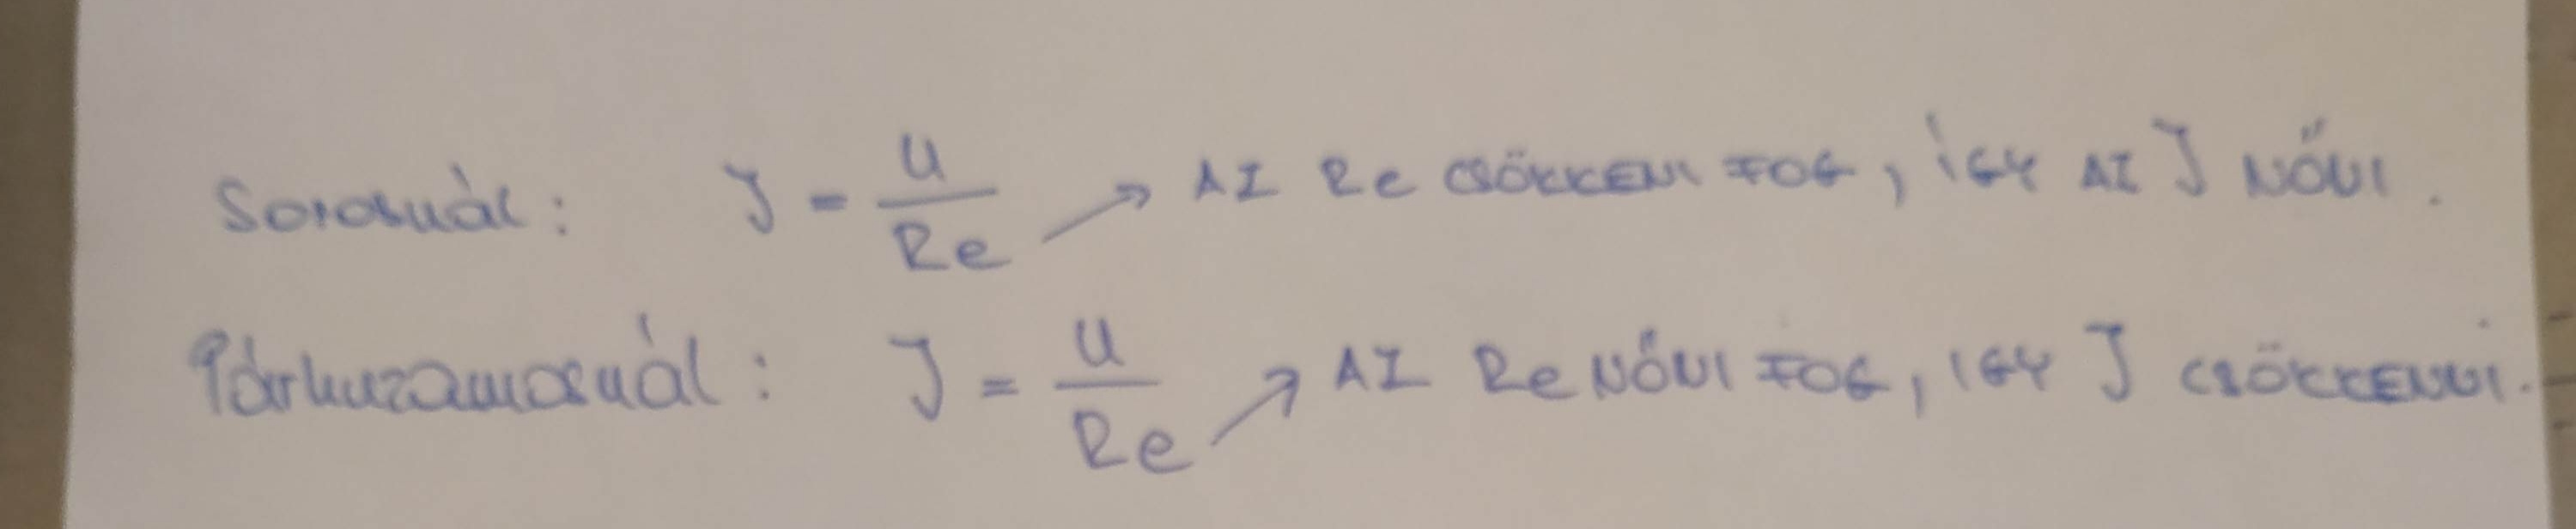 Sorosnál: I = U / Re → AZ Re CSÖKKENI FOG, ÍGY AZ I NŐNI.
Párhuzamosnál: I = U / Re → AZ Re NŐNI FOG, ÍGY I CSÖKKENNI.